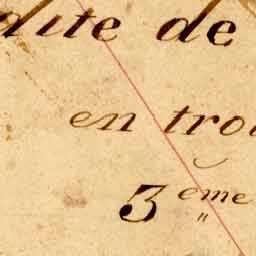 dite de
en troi
3 ème "